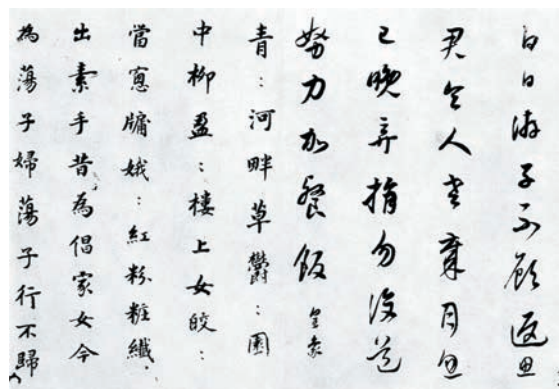 白日游子不顧返思
君令人老歲月忽
已晚弃捐勿復道
努力加餐飯 皇象
青:河畔草鬱:園
中柳盈:樓上女皎:
當窻牖娥:紅粉粧纖:
出素手昔為倡家女今
為蕩子婦蕩子行不歸